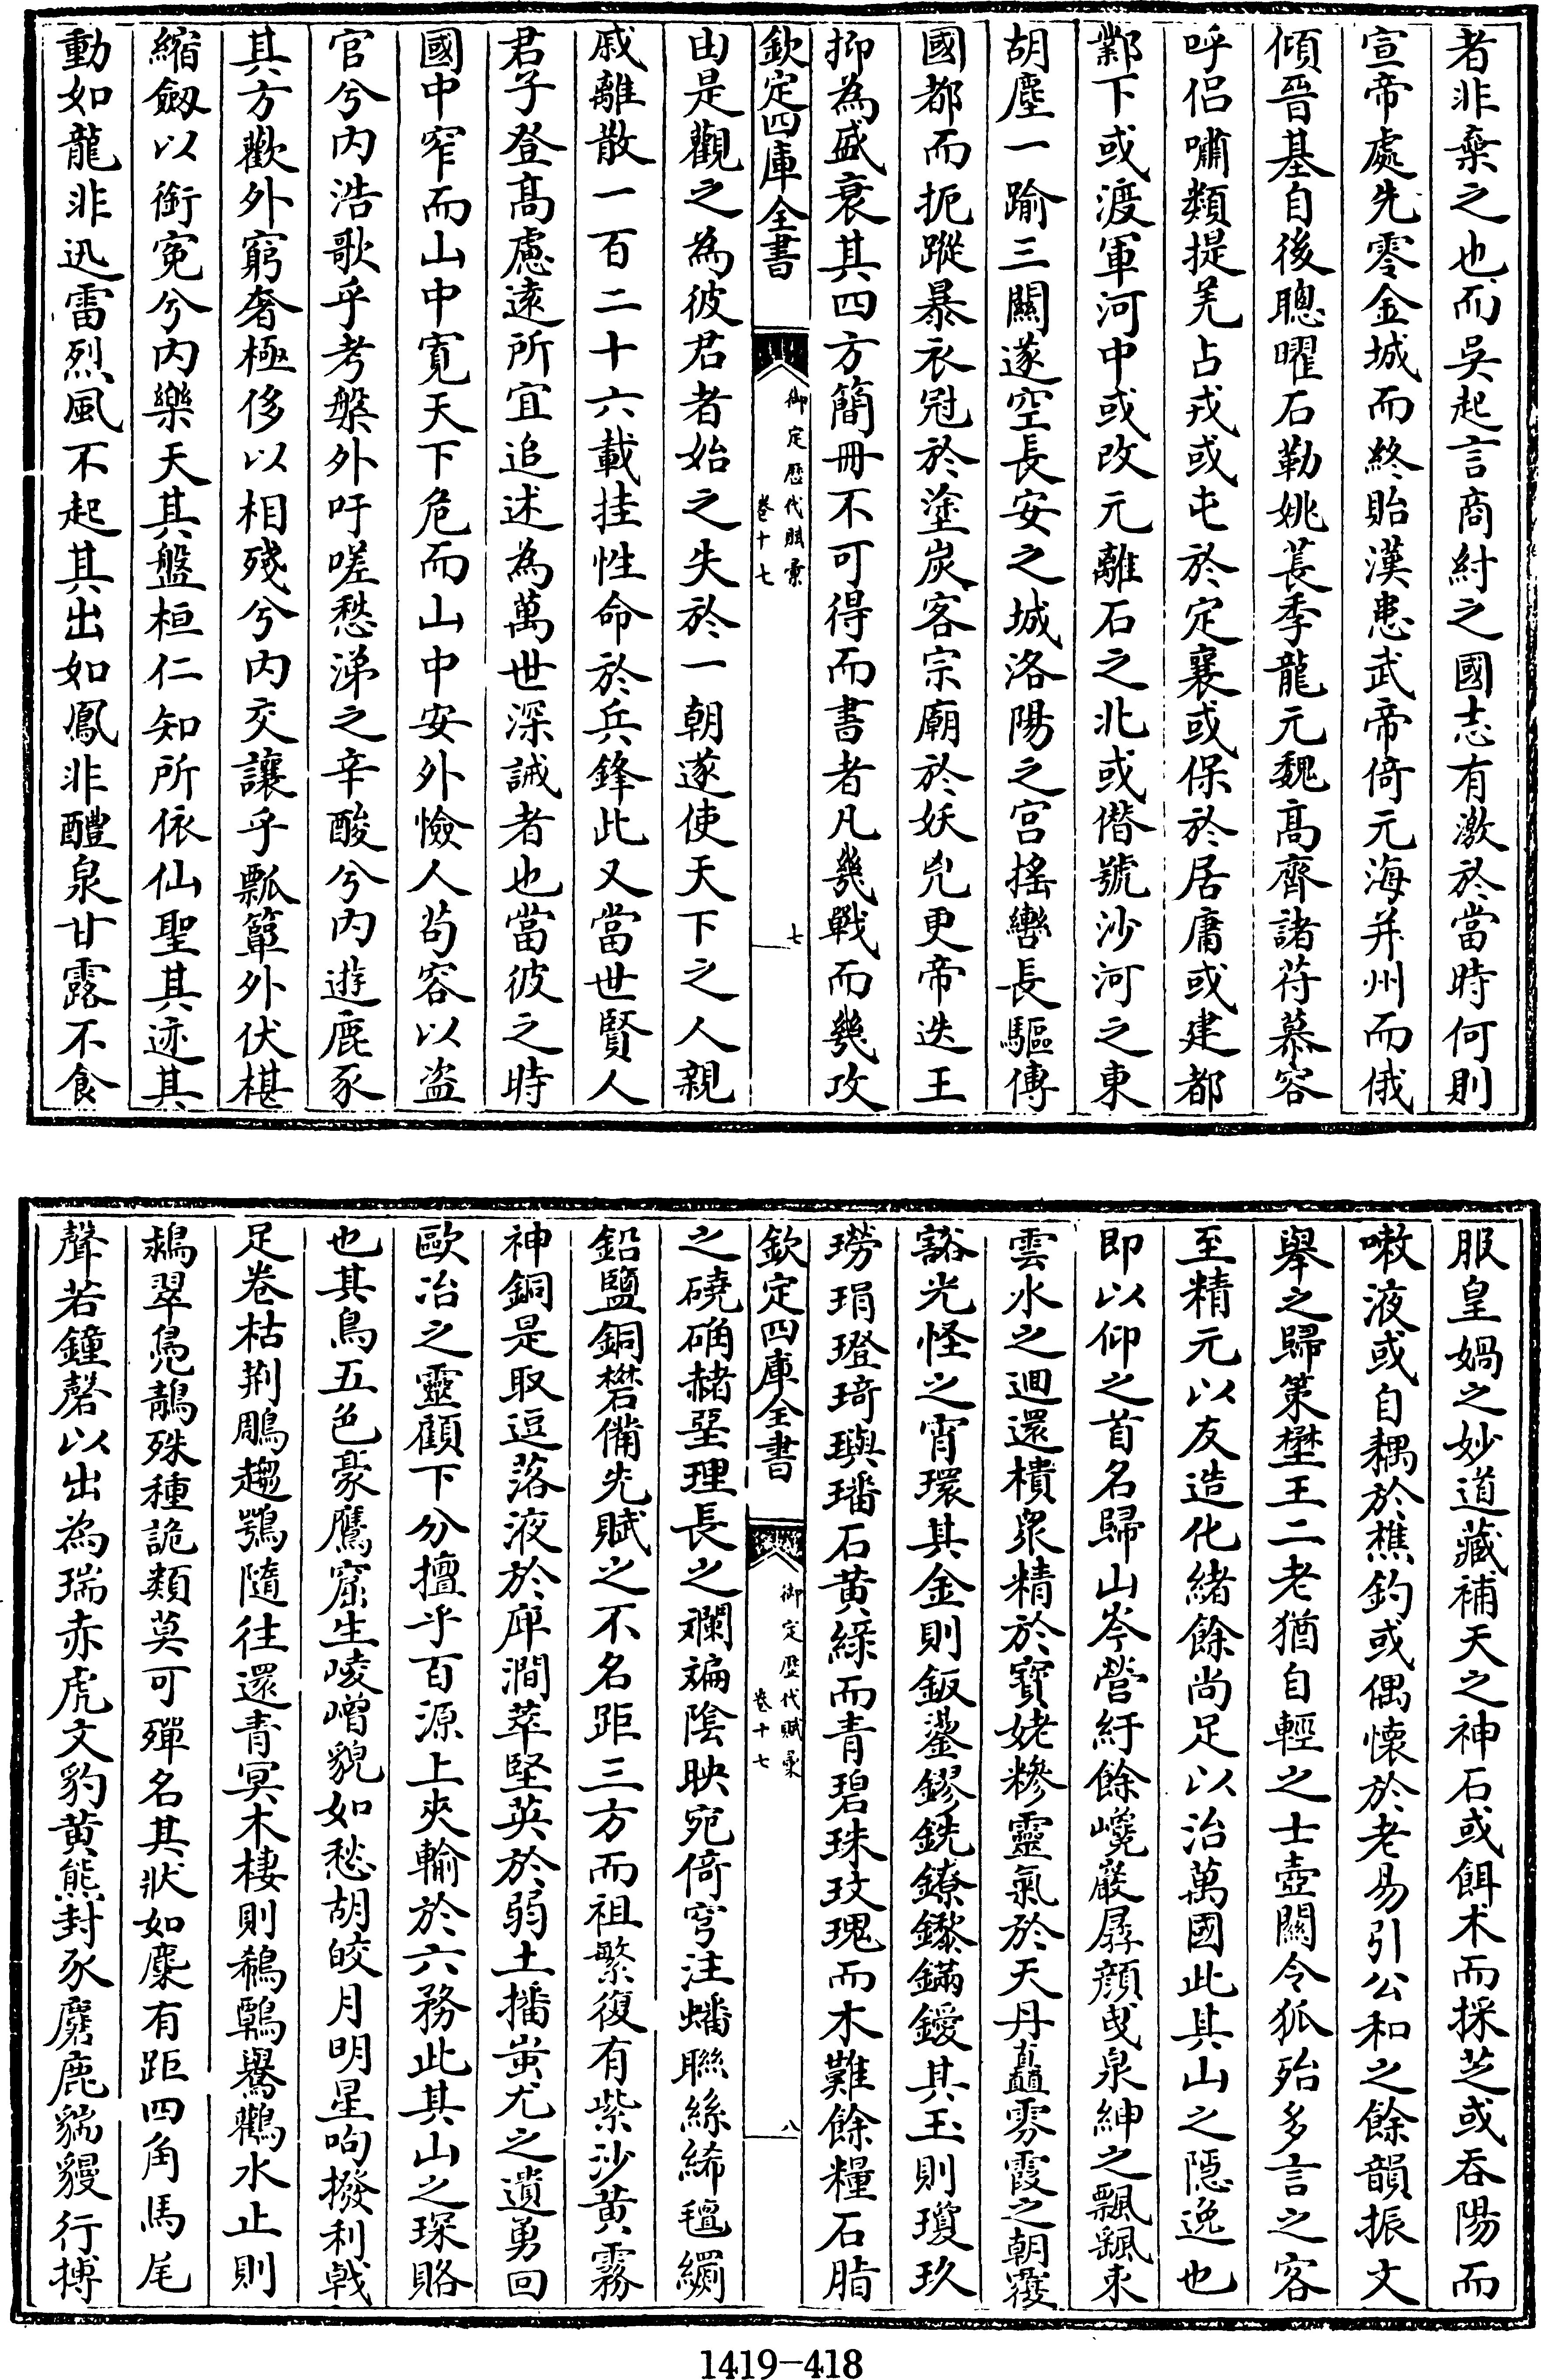 者非棄之也而吳起言商紂之國志有激於當時何則
宣帝處先零金城而終貽漢患武帝倚元海并州而俄
傾晉基自後聰曜石勒姚萇季龍元魏髙齊諸苻慕容
呼侣嘯類提羌占戎或屯於定襄或保於居庸或建都
鄴下或渡軍河中或改元離石之北或僭號沙河之東
胡塵一踰三關遂空長安之城洛陽之宫搖轡長驅傳
國都而扼蹤暴衣冠於塗炭客宗廟於妖兇更帝迭王
抑為盛衰其四方簡冊不可得而書者凡幾戰而幾攻
欽定四庫全書
御定歷代賦彙
卷十七
七
由是觀之為彼君者始之失於一朝遂使天下之人親
戚離散一百二十六載挂性命於兵鋒此又當世賢人
君子登髙慮遠所宜追述為萬世深誡者也當彼之時
國中窄而山中寛天下危而山中安外憸人茍容以盗
官兮内浩歌乎考槃外吁嗟愁涕之辛酸兮内遊鹿豕
其方歡外窮奢極侈以相殘兮内交讓乎瓢簞外伏椹
縮劔以銜寃兮内樂天其盤桓仁知所依仙聖其迹其
動如龍非迅雷烈風不起其出如鳳非醴泉甘露不食
服皇媧之妙道藏補天之神石或餌术而採芝或吞陽而
嗽液或自耦於樵釣或偶懐於老易引公和之餘韻振文
舉之歸策椘王二老猶自輕之士壺關令狐殆多言之客
至精元以友造化緒餘尚足以治萬國此其山之隠逸也
即以仰之首名歸山岑營紆餘巉巖孱顔曵泉紳之飄飄束
雲水之迴還櫝衆精於寶姥糝靈氣於天丹矗雰霞之朝覆
豁光怪之宵環其金則鈑鋈鏐銑鐐鑗鏋鑀其玉則瓊玖
㻍琄璒琦璵璠石黄緑而青碧珠玟瑰而木難餘糧石脂
欽定四庫全書
御定歷代賦彙
卷十七
八
之磽确赭堊理長之斕斒陰映宛倚穹注蟠聯絲絺氊纲
鉛鹽銅礬備先賦之不名距三方而祖繁復有紫沙黄霧
神銅是取逗落液於厈澗萃堅英於弱土播蚩尤之遺勇回
歐冶之靈顧下分擅乎百源上夾輸於六務此其山之琛賂
也其鳥五色豪鷹窟生崚嶒貌如愁胡皎月明星呴撥利㦸
足卷枯荆鵰趨鶚隨往還青冥木棲則鵵鶤鸒鸛水止則
鵜翠凫鶄殊種詭類莫可殫名其狀如麇有距四角馬尾
聲若鐘磬以出為瑞赤虎文豹黄熊封豕麏鹿貒貗行搏
1419-418